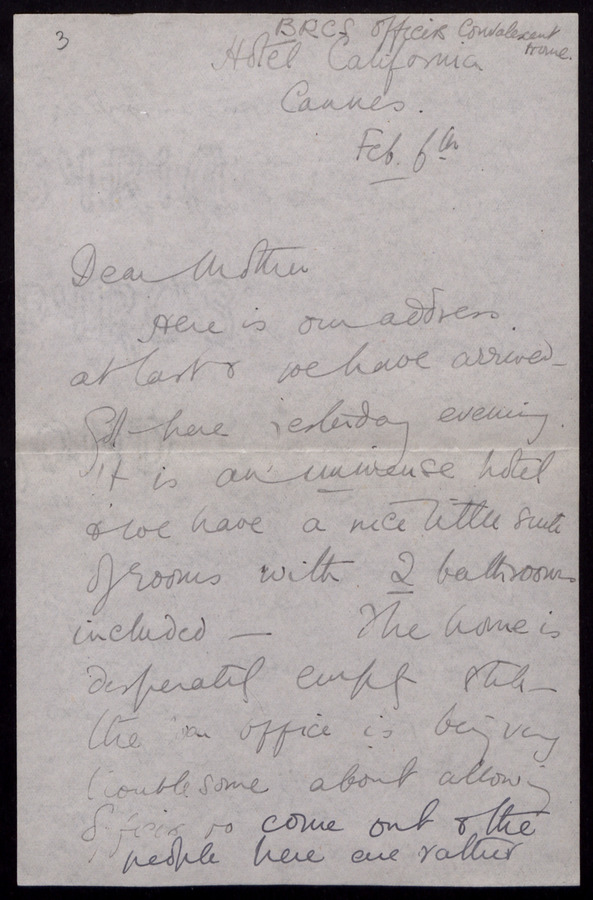 3
BRCS Officers Convalescent
Home.
Hotel California
Cannes.
Feb. 6th
Dear Mother
Here is our address
at last & we have arrived -
Got here yesterday evening.
It is an immense hotel
& we have a nice little suite
of rooms with 2 bathrooms
included — The home is
desperately empty still -
the War office is being very
troublesome about allowing
officers to come out & the
people here are rather